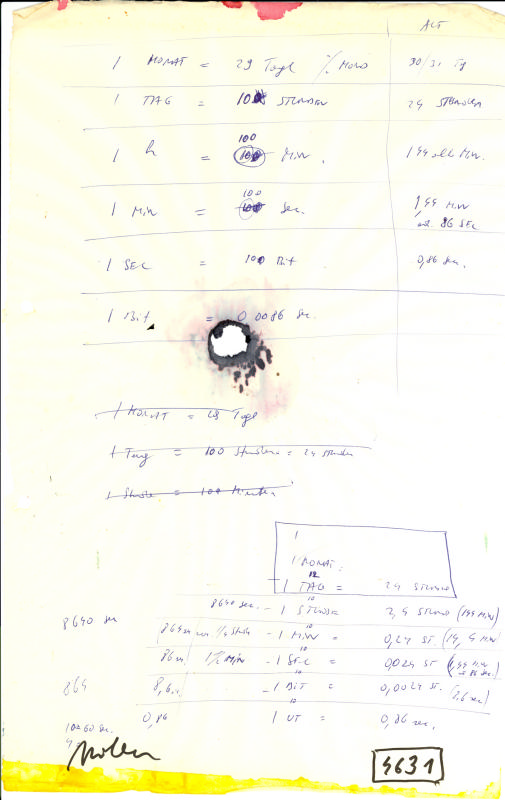 ALT
1 MONAT = 29 Tage 30/31 Tg
1 TAG = 10 STUNDEN 24 STUNDEN
100
1 h = 100 Min. 144 alte Min.
100
1 Min = 100 Sec. 1,44 MIN
86 SEC
1 SEC = 100 Bit 0,86 sec.
1 Bit = 0,0086 sec.
1 MONAT = 29 Tage
1 Tag = 100 Stunden = 24 Stunden
1 Stunde = 100 Minuten
1
1 MONAT =
12
1 TAG = 24 STUNDEN
10
8640 sec. - 1 STUNDE = 2,4 STUND (144 MIN)
8640 sec
10
1 MIN = 0,24 ST. (14,4 MIN
10
86 1 MIN - 1 SEC = 0,024 ST (1,44 MIN
86 sec.)
10
864 8,6 - 1 BIT = 0,0024 ST.
8,6 sec)
10
0,86 1 UT = 0,86 sec.
60 sec.
4631